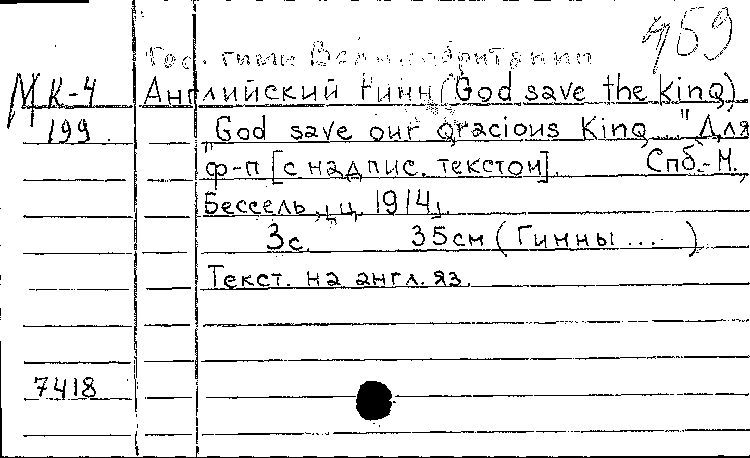 759
Гос. гимн Великобритании
М К-4 Английский гимн (God save the king)
199 "God save our gracious King..." Для
ф-п [с надпис. текстом]. Спб.-М.,
Бессель, ц. 1914.
3с. 35см (Гимны ....)
Текст. на англ. яз.
7418